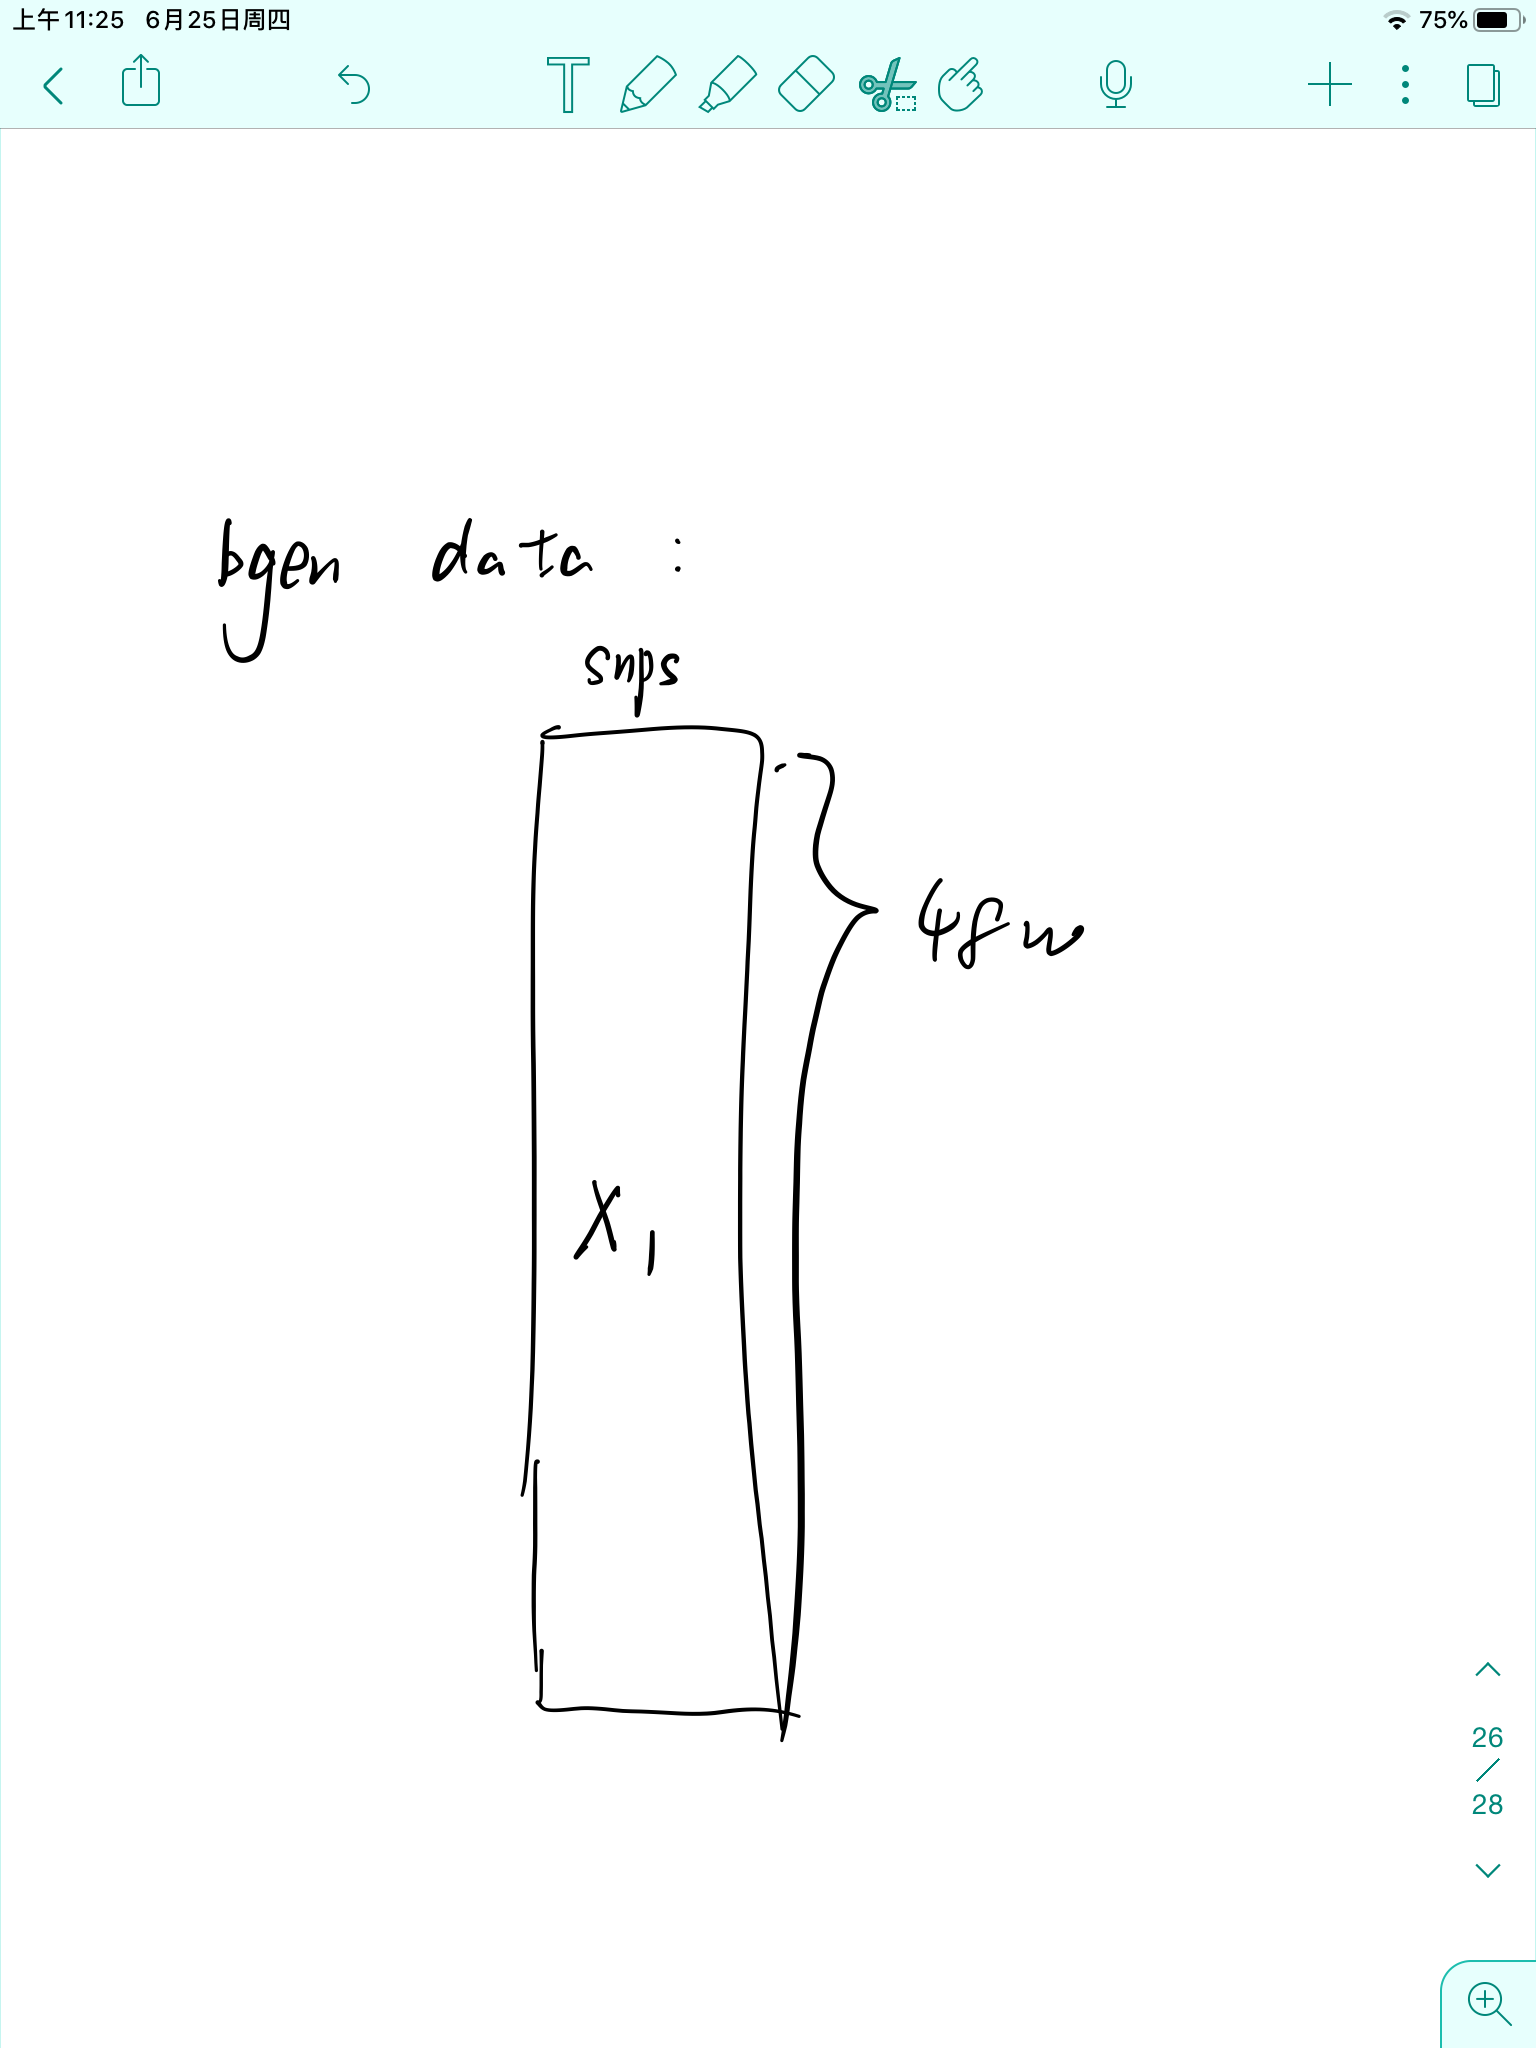 上午11:25 6月25日周四
75%
T
bgen data :
snps
48w
X₁
26
/
28